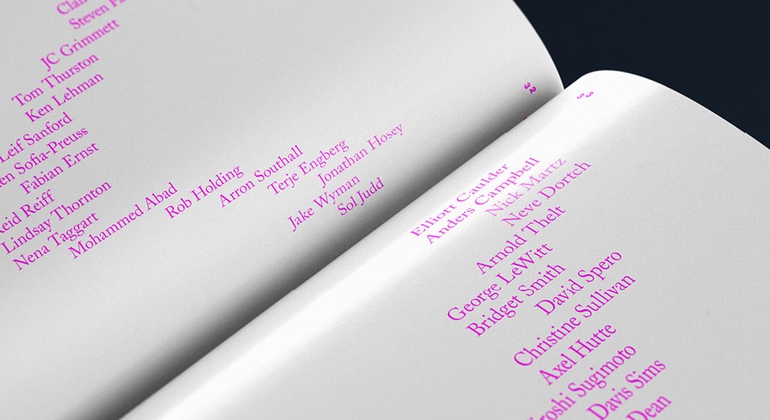 Steven
JC Grimmett
Tom Thurston
Ken Lehman
Leif Sanford
Sofia-Preuss
Fabian Ernst
Reiff
Lindsay Thornton
Nena Taggart
Mohammed Abad
Rob Holding
Arron Southall
Terje Engberg
Jonathan Hosey
Jake Wyman
Sol Judd
32
33
Elliott Caulder
Anders Campbell
Nick Martz
Neve Dortch
Arnold Thelt
George LeWitt
Bridget Smith
David Spero
Christine Sullivan
Axel Hutte
Sugimoto
Davis Sims
Dean